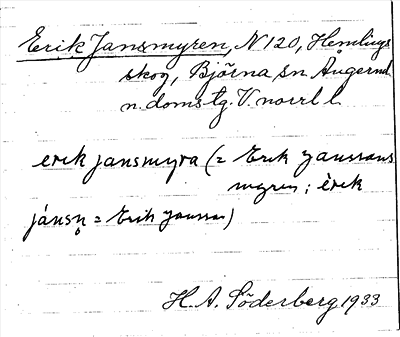 Erik Jansmyren, N 120, Hemlings
skog, Björna sn Ångerml
n. doms tg. V. norrl l.
erik jansmyra (= Erik Janssons
myren; èrik
jánsn̥ = Erik Jansson)
H. A. Söderberg 1933